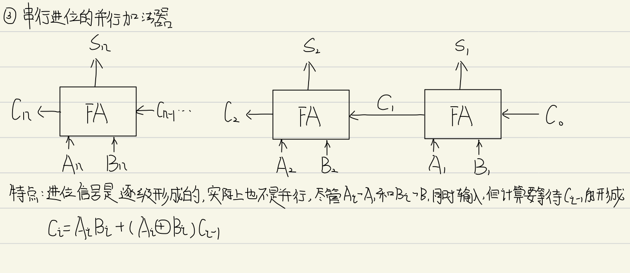 ③ 串行进位的并行加法器
Sn S₂ S₁
Cn FA Cn-1… C₂ FA C₁ FA C₀
An Bn A₂ B₂ A₁ B₁
特点:进位信号是逐级形成的,实际上也不是并行,尽管Ai~A₁和Bi~B₁同时输入,但计算要等待Ci-1的形成
Ci=AiBi+(Ai⊕Bi)Ci-1